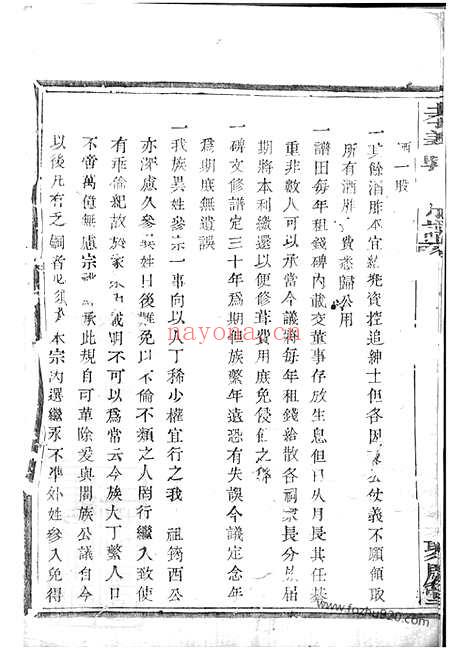 酒一股
一其餘酒胙本宜給發資控追紳士但各因 公仗義不願領取
所有酒胙 費悉歸公用
一譜田每年租錢碑內載交董事存放生息但日久月長其任綦
重非數人可以承當今議將每年租錢給散各祠家長分放屆
期將本利繳還以便修葺費用庶免侵佔之弊
一碑文修譜定三十年為期但族繁年遠恐有失誤今議定念年
為期庶無遺誤
一我族異姓參宗一事向以人丁稀少權宜行之我 祖筠西公
亦深慮久參異姓日後難免以不倫不類之人罔行繼入致使
有乖倫紀故於家乘內載明不可以為常云今族大丁繁人口
不啻萬億無慮宗祧 承此規自可革除爰與闔族公議自今
以後凡有乏嗣者必須 本宗內選繼永不準外姓參入免得
nayona.cn
www.fozhu920.com